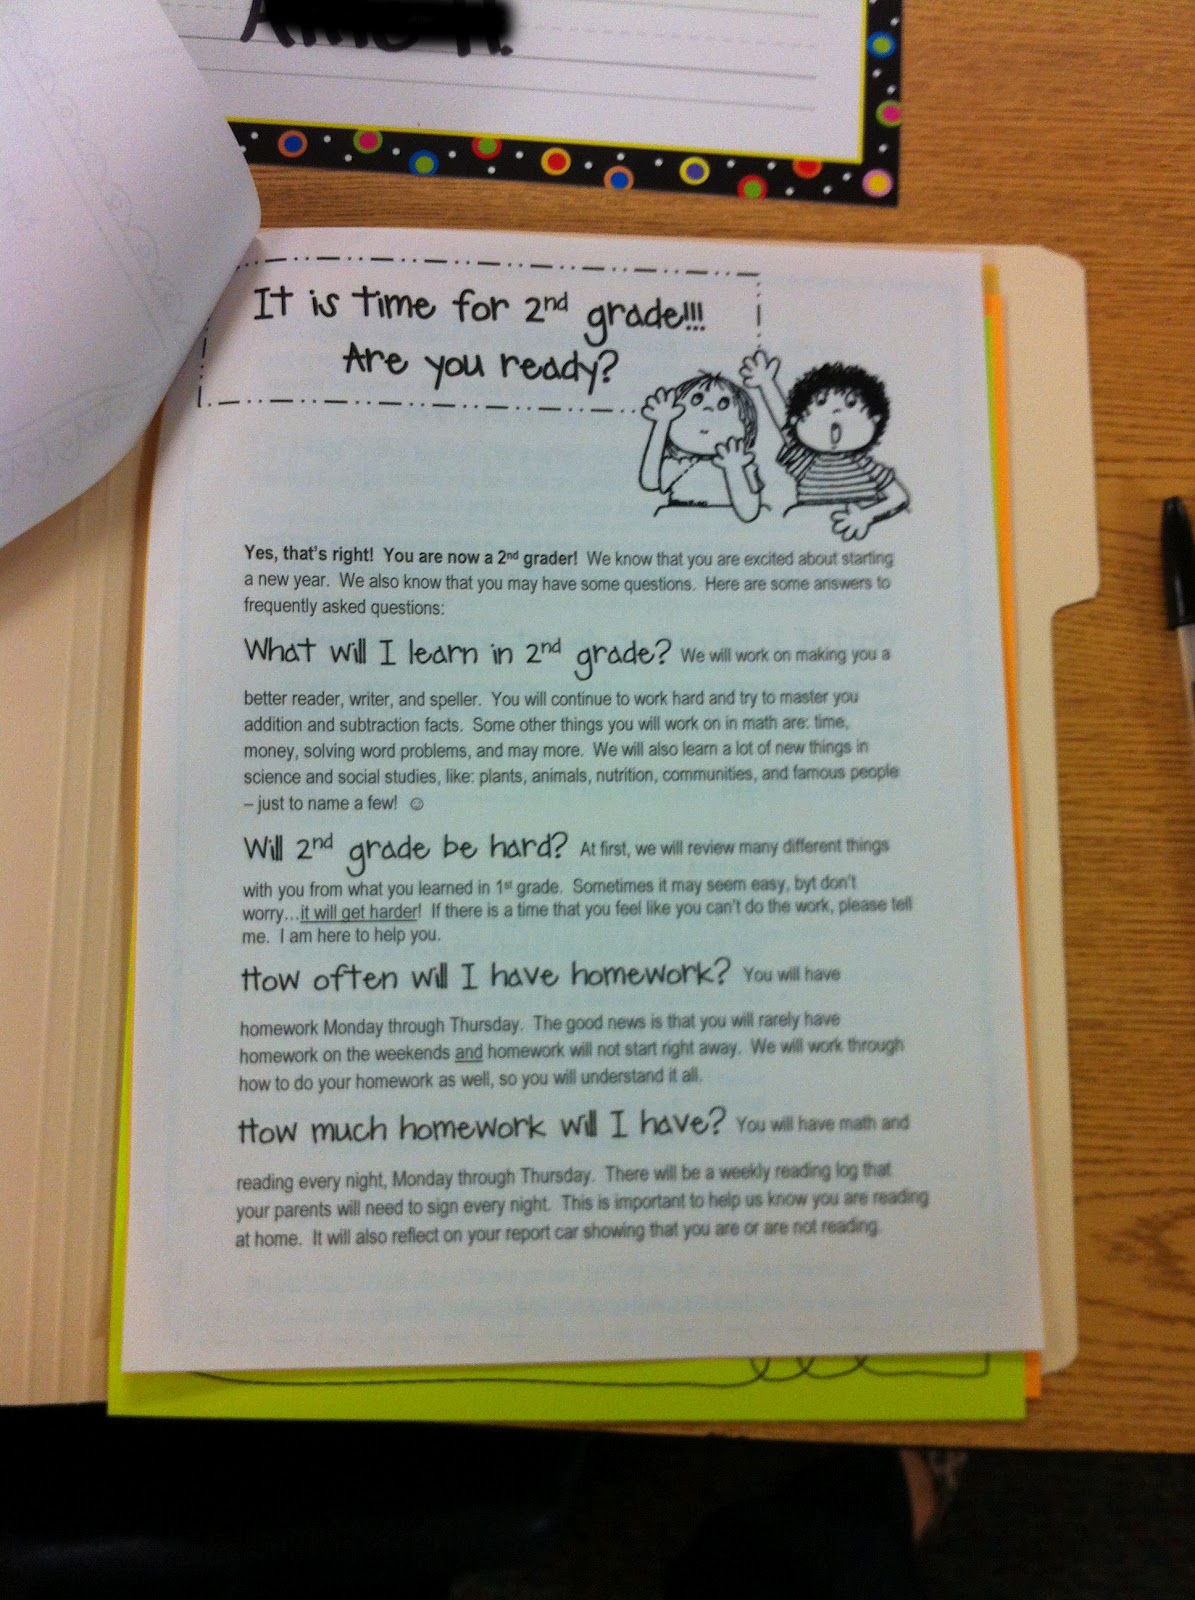 It is time for 2nd grade!!!
Are you ready?
Yes, that's right! You are now a 2nd grader! We know that you are excited about starting
a new year. We also know that you may have some questions. Here are some answers to
frequently asked questions:
What will I learn in 2nd grade? We will work on making you a
better reader, writer, and speller. You will continue to work hard and try to master you
addition and subtraction facts. Some other things you will work on in math are: time,
money, solving word problems, and may more. We will also learn a lot of new things in
science and social studies, like: plants, animals, nutrition, communities, and famous people
– just to name a few! ☺
Will 2nd grade be hard? At first, we will review many different things
with you from what you learned in 1st grade. Sometimes it may seem easy, byt don't
worry…it will get harder! If there is a time that you feel like you can't do the work, please tell
me. I am here to help you.
How often will I have homework? You will have
homework Monday through Thursday. The good news is that you will rarely have
homework on the weekends and homework will not start right away. We will work through
how to do your homework as well, so you will understand it all.
How much homework will I have? You will have math and
reading every night, Monday through Thursday. There will be a weekly reading log that
your parents will need to sign every night. This is important to help us know you are reading
at home. It will also reflect on your report car showing that you are or are not reading.